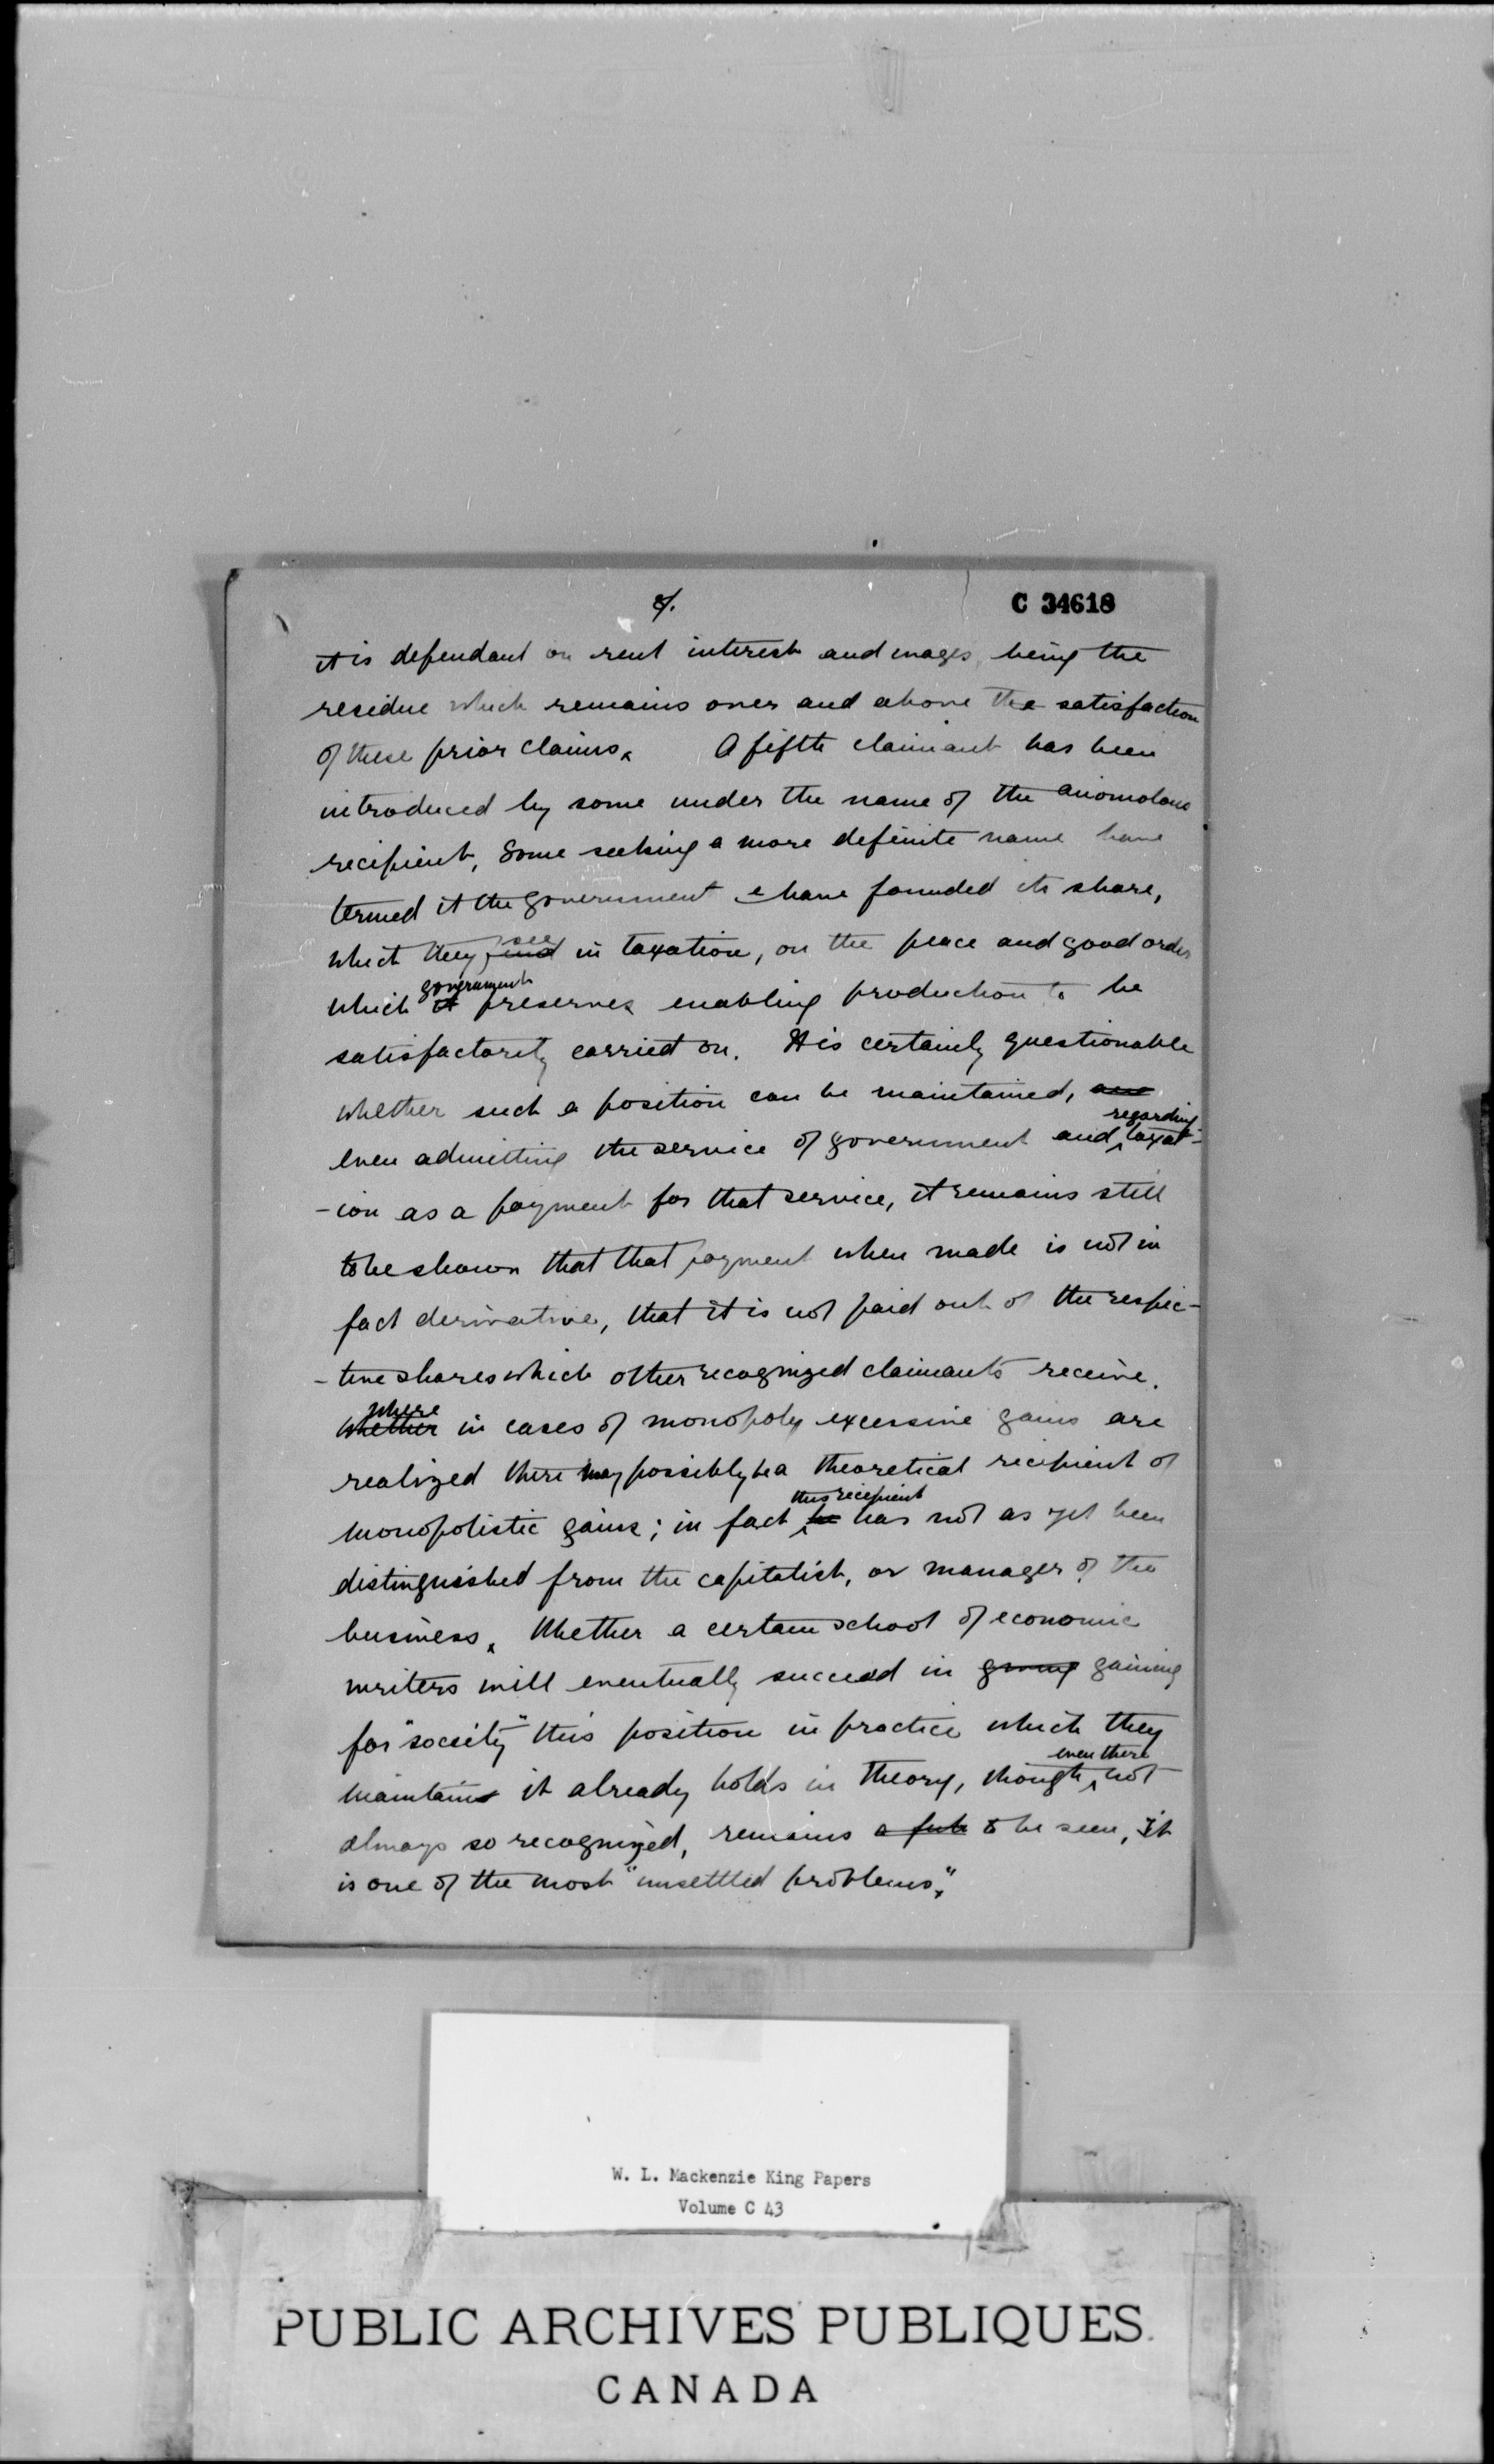 8.
C 34618
it is dependant on rent interest and wages, being the
residue which remains over and above the satisfaction
of these prior claims. A fifth claimant has been
introduced by some under the name of the anomolous
recipient, Some seeking a more definite name have
termed it the government & have founded its share,
see
which they find in taxation, on the peace and good order
government
which it preserves enabling production to be
satisfactorily carried on. It is certainly questionable
whether such a position can be maintained, and
regarding
even admitting the service of government and taxat-
-ion as a payment for that service, it remains still
to be shown that that payment when made is not in
fact derivative, that it is not paid out of the respec-
-tive shares which other recognized claimants receive.
where
Whether in cases of monopoly excessive gains are
realized there may possibly be a theoretical recipient of
this recipient
monopolistic gains; in fact he has not as yet been
distinguished from the capitalist, or manager of the
business. Whether a certain school of economic
writers will eventually succeed in giving gaining
for "society" this position in practice which they
even there
maintains it already holds in theory, though not
always so recognized, remains to be seen, It
is one of the most "unsettled problems."
W. L. Mackenzie King Papers
Volume C 43
PUBLIC ARCHIVES PUBLIQUES
CANADA